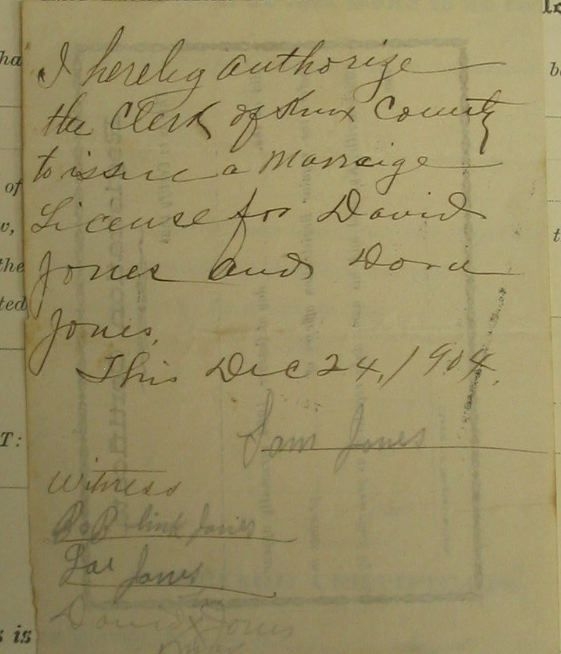 I hereby authorize
the Clerk of Knox County
to issue a Marraige
License for David
Jones and Dora
Jones,
This Dec 24, 1904.
Sam Jones
Witness
Jones
Jones
David X Jones
ha
of
v,
the
ted
T:
s is
le
b
t